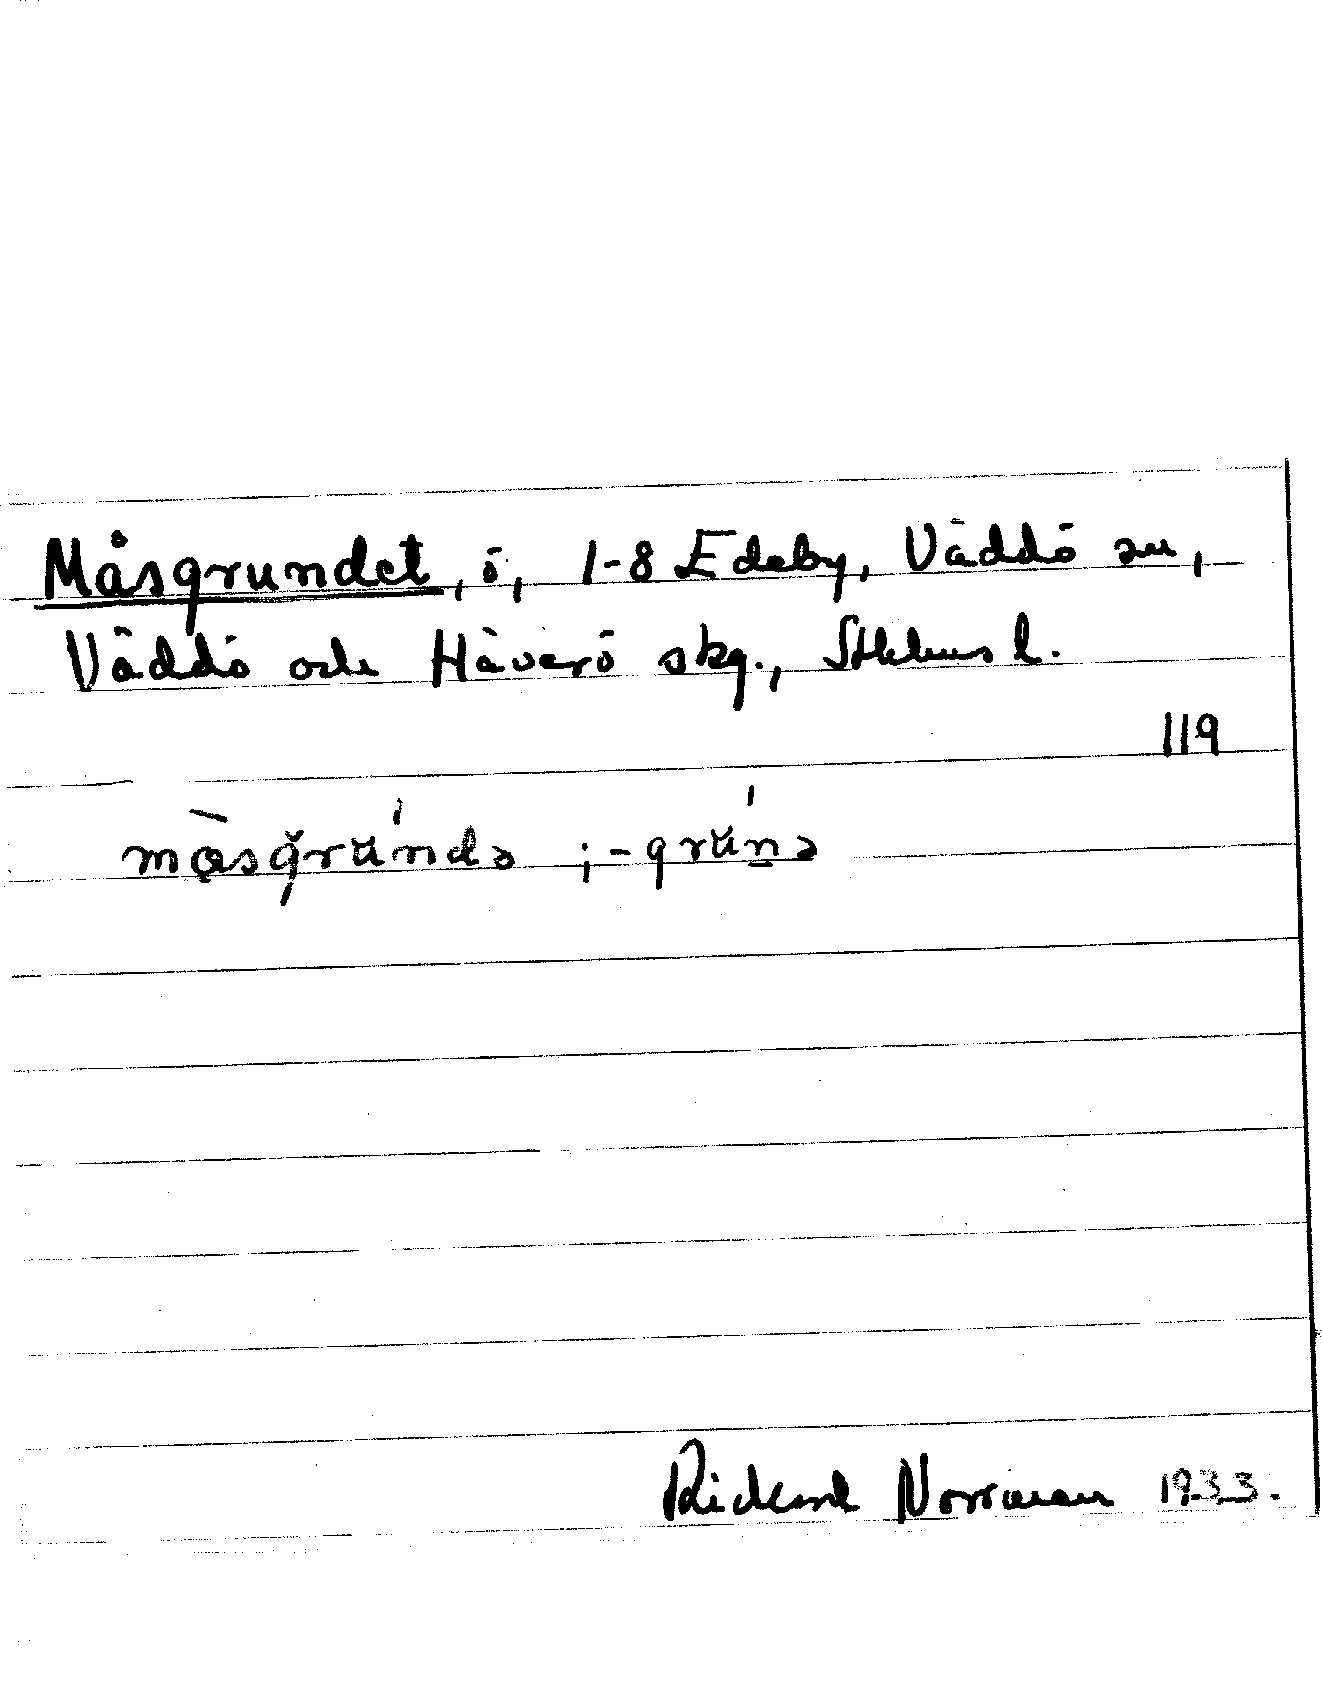 Måsgrundet, ö, 1-8 Edeby, Väddö sn,
Väddö och Häverö skg., Sthlms l.
119
mɑ̀sgrúndə ; -grúnə
Rickard Norrman 1933.